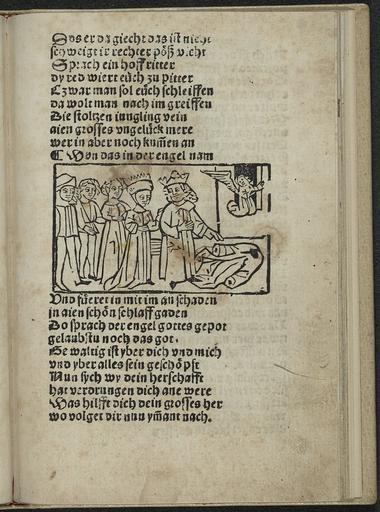 Das er da giecht das ist nicht
schweigt ir rechter pößwicht
Sprach ein hoffritter
dy red wiert eüch zu pitter
Czwar man sol eüch schleiffen
da wolt man nach im greiffen
Die stoltzen iungling vein
aien grosses vngelück mere
wer in aber noch kumen an
Von das in der engel nam
Vnd füeret in mit im an schaden
in aien schön schlaff gaden
Do sprach der engel gottes gepot
gelaubstu noch das got.
Ge waltig ist yber dich vnd mich
vnd yber alles sein geschöpft
Nun sych wy dein herschafft
hat verdrungen dich ane were
Was hilfft dich dein grosses her
wo volget dir nun ymant nach.